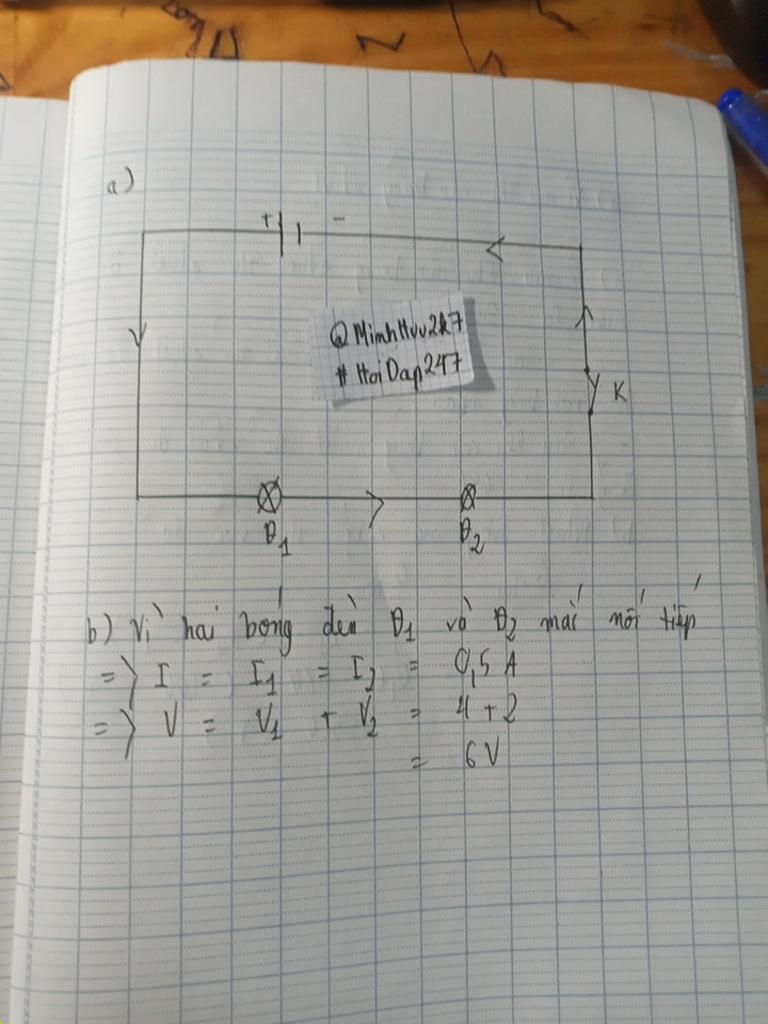 a)
+ -
@MinhHuu2k7
#HoiDap247
K
Đ1 Đ2
b) Vì hai bóng đèn Đ1 và Đ2 mắc nối tiếp
=> I = I1 = I2 = 0,5 A
=> V = V1 + V2 = 4 + 2
= 6V